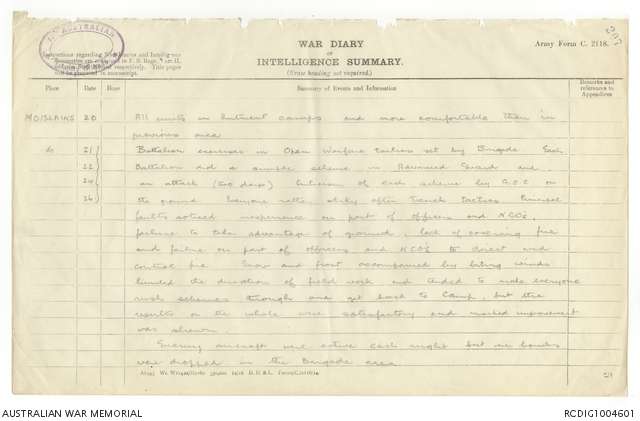 AUSTRALIAN
WAR DIARY
or
INTELLIGENCE SUMMARY.
(Erase heading not required.)
Army Form C. 2118.
Instructions regarding War Diaries and Intelligence
Summaries are contained in F. S. Regs., Part II.
and the Staff Manual respectively. Title pages
will be prepared in manuscript.
Place Date Hour Summary of Events and Information Remarks and references to Appendices
MOISLAINS 20 All units in hutment camps and more comfortable than in
previous area
do 21 Battalion exercises in Open Warfare tactics set by Brigade Each
22 Battalion did a simple scheme in Advanced Guard and
24 an attack (two days) Criticism of each scheme by G.O.C on
26 the ground Everyone rather sticky after Trench tactics Principal
faults noticed inexperience on part of officers and NCO's,
failure to take advantage of ground, lack of covering fire
and failure on part of officers and NCO's to direct and
control fire Snow and frost accompanied by biting winds
limited the duration of field work and tended to make everyone
rush schemes through and get back to Camp, but the
results on the whole were satisfactory and marked improvement
was shewn.
Enemy aircraft were active each night but no bombs
were dropped in the Brigade area
AUSTRALIAN WAR MEMORIAL
RCDIG1004601